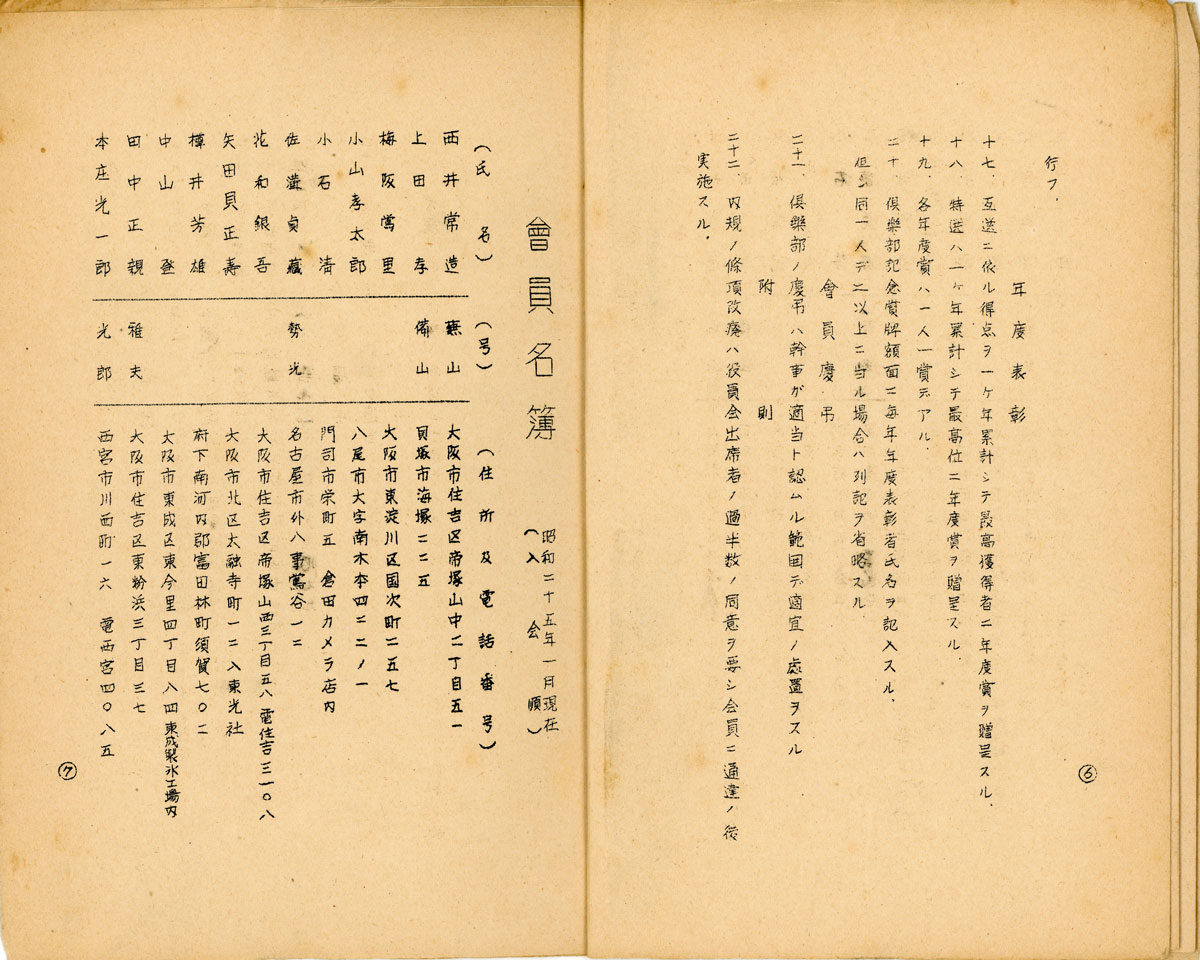 行フ．
年度表彰
十七、互送ニ依ル得点ヲ一ヶ年累計シテ最高獲得者ニ年度賞ヲ贈呈スル．
十八、特選ハ一ヶ年累計シテ最高位ニ年度賞ヲ贈呈スル．
十九、各年度賞ハ一人一賞デアル．
二十、倶樂部記念賞牌額面ニ毎年年度表彰者氏名ヲ記入スル．
但シ同一人デ二以上ニ当ル場合ハ列記ヲ省略スル
會員慶弔
二十一、倶樂部ノ慶弔ハ幹事が適当ト認ムル範囲デ適宜ノ處置ヲスル
附則
二十二、内規ノ條項改廃ハ役員会出席者ノ過半数ノ同意ヲ要シ会員ニ通達ノ後
実施スル．
⑥
昭和二十五年一月現在
會員名簿 （入会順）
（氏名） （号） （住所及電話番号）
西井常造 蕪山 大阪市住吉区帝塚山中二丁目五一
上田孝 備山 貝塚市海塚二二五
梅阪鶯里 大阪市東淀川区国次町二五七
小山孝太郎 八尾市大字南木本四二二ノ一
小石清 門司市栄町五 倉田カメラ店内
佐溝貞藏 勢光 名古屋市外八事鶯谷一二
花和銀吾 大阪市住吉区帝塚山西三丁目五八 電住吉三一〇八
矢田貝正壽 大阪市北区太融寺町一二入東光社
樽井芳雄 府下南河内郡富田林町須賀七〇二
中山登 大阪市東成区東今里四丁目八四 東成製氷工場内
田中正親 雅夫 大阪市住吉区東粉浜三丁目三七
本庄光一郎 光郎 西宮市川西町一六 電西宮四〇八五
⑦